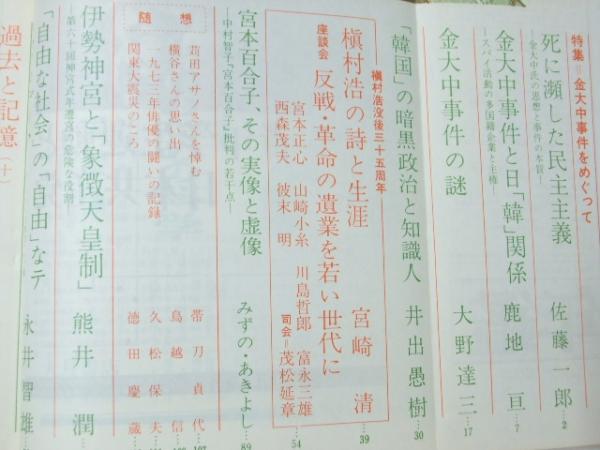 特集=金大中事件をめぐって
死に瀕した民主主義
―金大中氏の思想と事件の本質―
佐藤一郎…2
金大中事件と日「韓」関係
―スパイ活動の多国籍企業と主権―
鹿地亘…7
金大中事件の謎
大野達三…17
「韓国」の暗黒政治と知識人
井出愚樹…30
槇村浩没後三十五周年
槇村浩の詩と生涯
宮崎清…39
座談会 反戦・革命の遺業を若い世代に
宮本正心 山崎小糸 川島哲郎 富永三雄
西森茂夫 彼末明 司会=茂松延章…54
宮本百合子、その実像と虚像
―中村智子『宮本百合子』批判の若干点―
みずの・あきよし…89
随想
苅田アサノさんを悼む
帯刀貞代…107
横谷さんの思い出
鳥越信
一九七三年俳優の闘いの記録
久松保夫
関東大震災のころ
徳田慶蔵
伊勢神宮と「象徴天皇制」
―第六十回神宮式年遷宮の危険な役割―
熊井潤
「自由な社会」の「自由」なテ
永井智雄
過去と記憶(十)